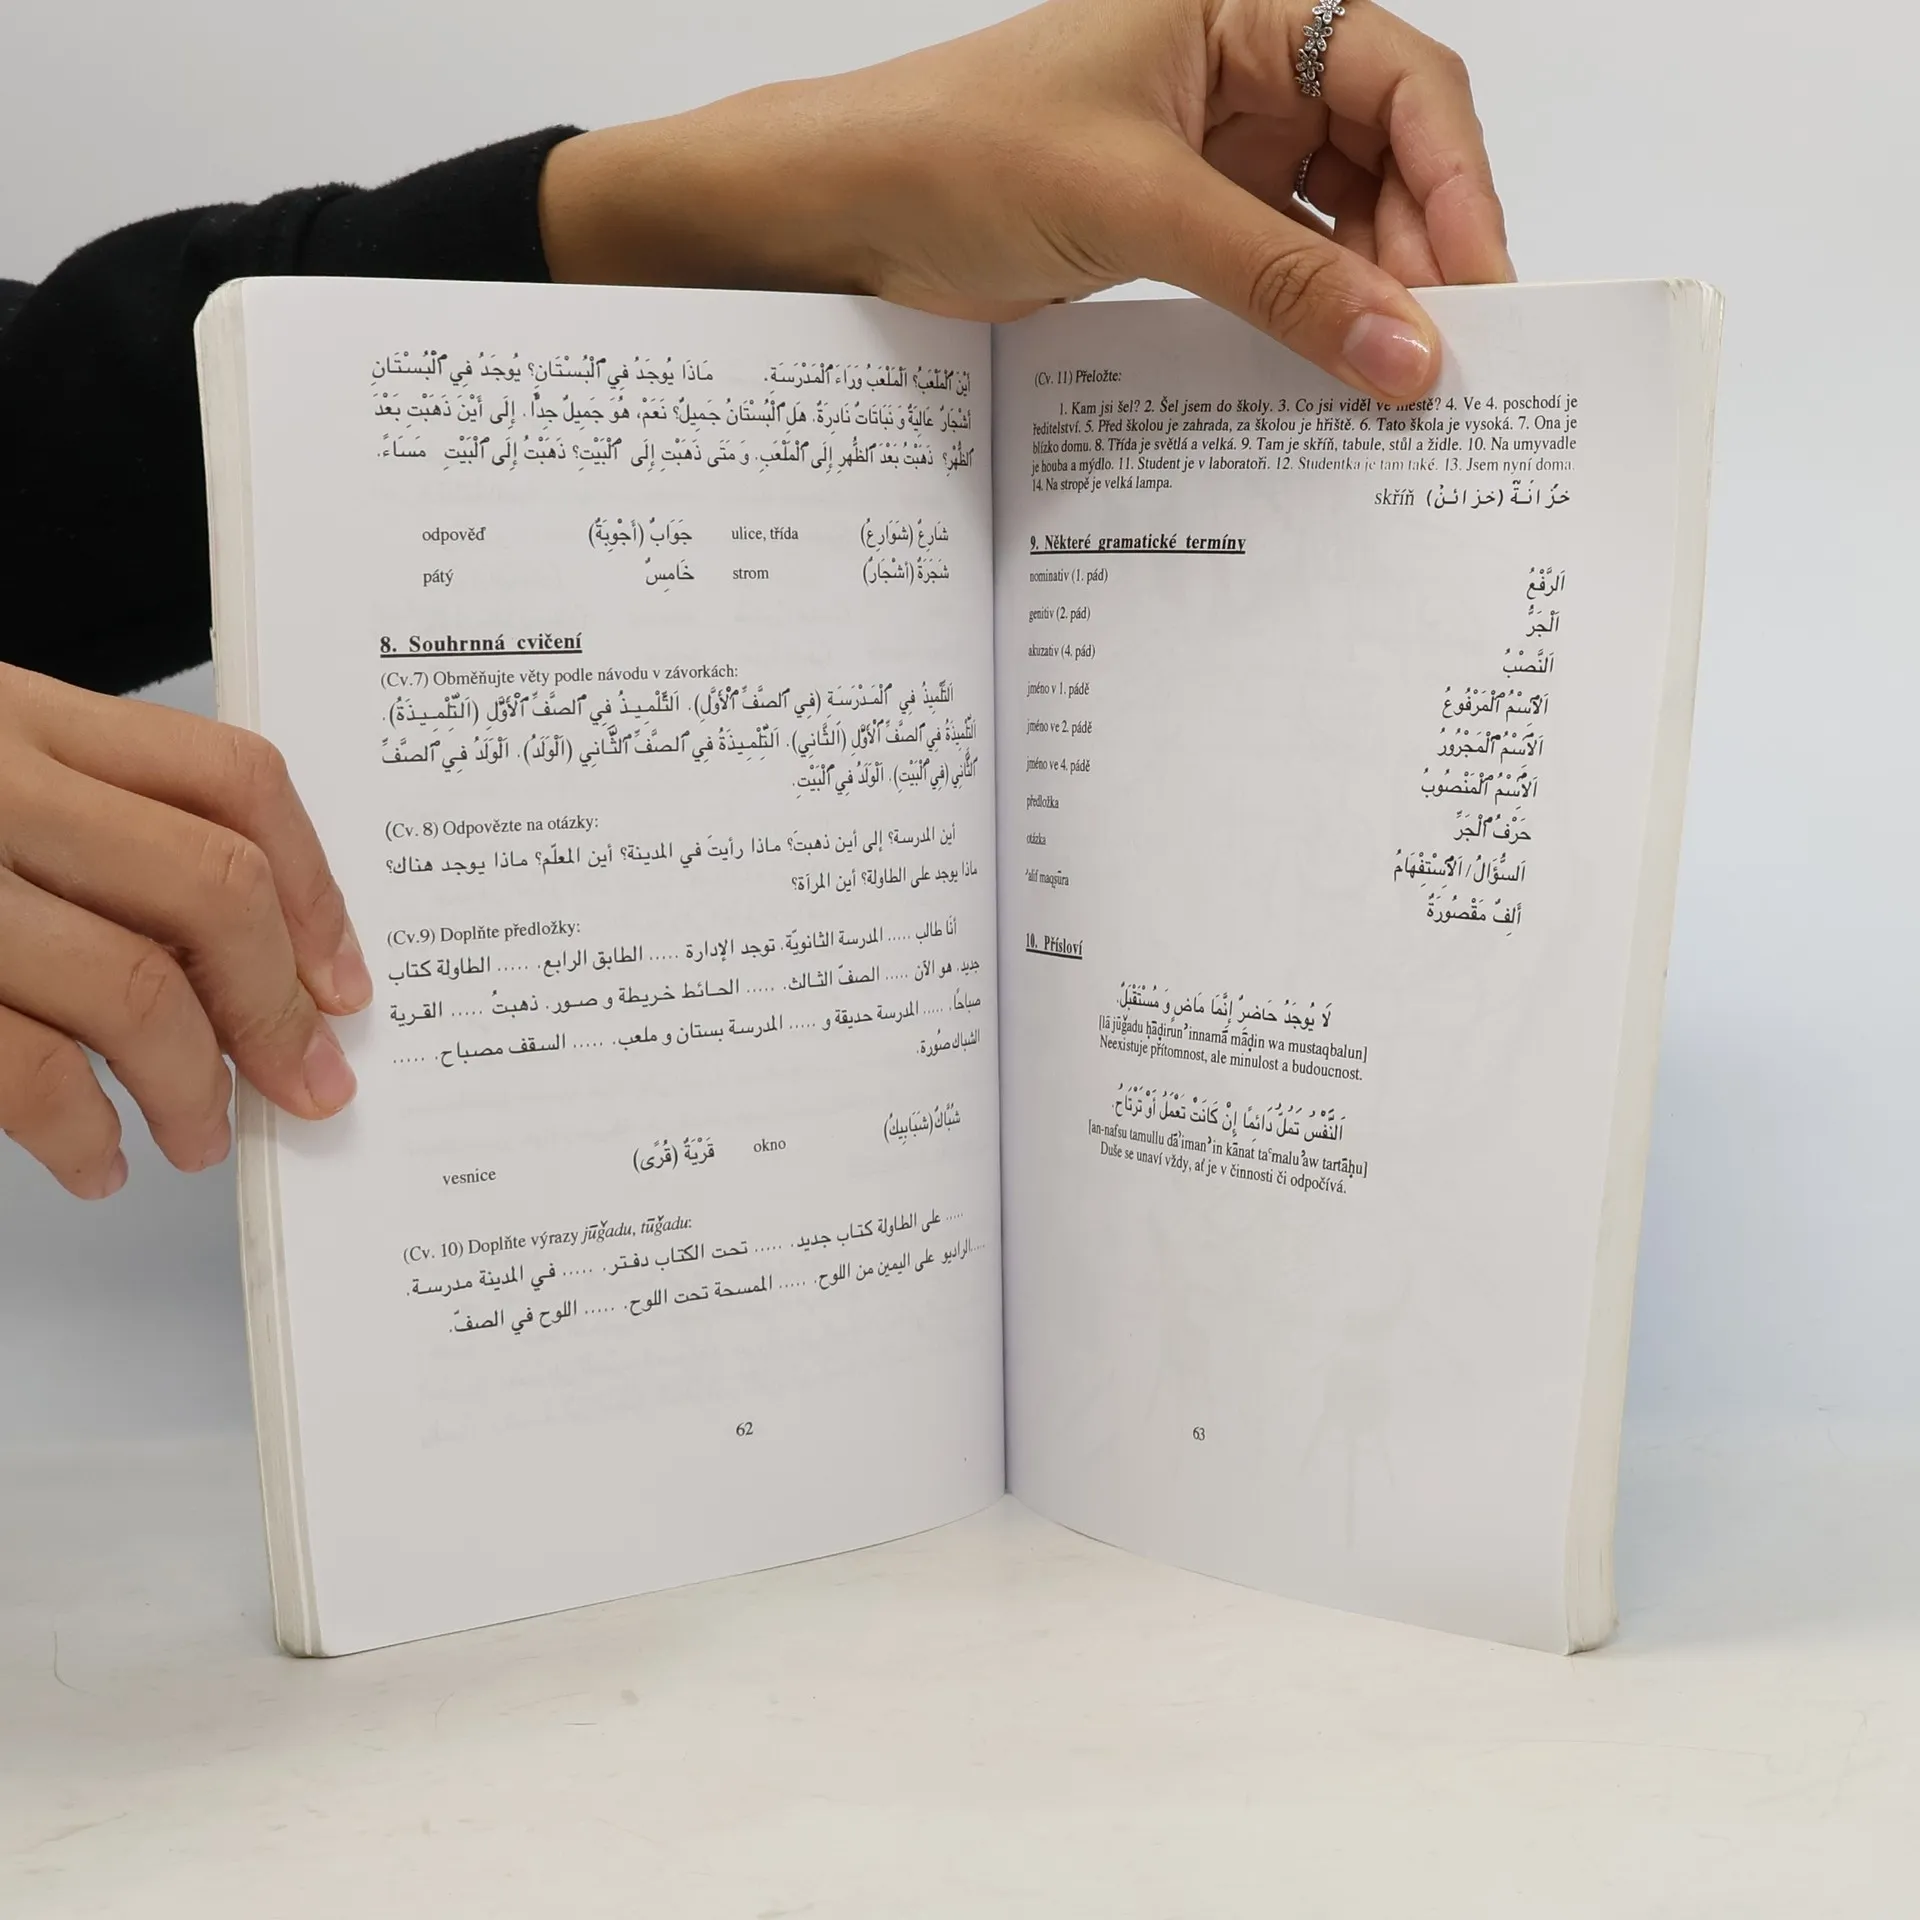 أَيْنَ ٱلْمَلْعَبُ؟ اَلْمَلْعَبُ وَرَاءَ ٱلْمَدْرَسَةِ. مَاذَا يُوجَدُ فِي ٱلْبُسْتَانِ؟ يُوجَدُ فِي ٱلْبُسْتَانِ
أَشْجَارٌ عَالِيَةٌ وَ نَبَاتَاتٌ نَادِرَةٌ. هَلِ ٱلْبُسْتَانُ جَمِيلٌ؟ نَعَمْ، هُوَ جَمِيلٌ جِدًّا. إِلَى أَيْنَ ذَهَبْتِ بَعْدَ
ٱلظُّهْرِ؟ ذَهَبْتُ بَعْدَ ٱلظُّهْرِ إِلَى ٱلْمَلْعَبِ. وَ مَتَى ذَهَبْتِ إِلَى ٱلْبَيْتِ؟ ذَهَبْتُ إِلَى ٱلْبَيْتِ مَسَاءً.
odpověď جَوَابٌ (أَجْوِبَةٌ) ulice, třída شَارِعٌ (شَوَارِعُ)
pátý خَامِسٌ strom شَجَرَةٌ (أَشْجَارٌ)
8. Souhrnná cvičení
(Cv.7) Obměňujte věty podle návodu v závorkách:
اَلتِّلْمِيذُ فِي ٱلْمَدْرَسَةِ (فِي ٱلصَّفِّ ٱلْأَوَّلِ). اَلتِّلْمِيذُ فِي ٱلصَّفِّ ٱلْأَوَّلِ (اَلتِّلْمِيذَةُ).
اَلتِّلْمِيذَةُ فِي ٱلصَّفِّ ٱلْأَوَّلِ (اَلثَّانِي). اَلتِّلْمِيذَةُ فِي ٱلصَّفِّ ٱلثَّانِي (اَلْوَلَدُ). اَلْوَلَدُ فِي ٱلصَّفِّ
ٱلثَّانِي (فِي ٱلْبَيْتِ). اَلْوَلَدُ فِي ٱلْبَيْتِ.
(Cv. 8) Odpovězte na otázky:
أين المدرسة؟ إلى أين ذهبتَ؟ ماذا رأيتَ في المدينة؟ أين المعلّم؟ ماذا يوجد هناك؟
ماذا يوجد على الطاولة؟ أين المرآة؟
(Cv.9) Doplňte předložky:
أنا طالب ..... المدرسة الثانويّة. توجد الإدارة ..... الطابق الرابع. ..... الطاولة كتاب
جديد. هو الآن ..... الصفّ الثالث. ..... الحائط خريطة و صور. ذهبتُ ..... القرية
صباحًا. ..... المدرسة حديقة و ..... المدرسة بستان و ملعب. ..... السقف مصباح. .....
الشباك صُورة.
vesnice قَرْيَةٌ (قُرًى) okno شُبَّاكٌ (شَبَابِيكُ)
(Cv. 10) Doplňte výrazy jūǧadu, tūǧadu:
..... على الطاولة كتاب جديد. ..... تحت الكتاب دفتر. ..... في المدينة مدرسة.
.....الراديو على اليمين من اللوح. ..... الممسحة تحت اللوح. ..... اللوح في الصفّ.
62
(Cv. 11) Přeložte:
1. Kam jsi šel? 2. Šel jsem do školy. 3. Co jsi viděl ve městě? 4. Ve 4. poschodí je
ředitelství. 5. Před školou je zahrada, za školou je hřiště. 6. Tato škola je vysoká. 7. Ona je
blízko domu. 8. Třída je světlá a velká. 9. Tam je skříň, tabule, stůl a židle. 10. Na umyvadle
je houba a mýdlo. 11. Student je v laboratoři. 12. Studentka je tam také. 13. Jsem nyní doma.
14. Na stropě je velká lampa.
skříň خِزَانَةٌ (خزائنُ)
9. Některé gramatické termíny
nominativ (1. pád) اَلرَّفْعُ
genitiv (2. pád) اَلْجَرُّ
akuzativ (4. pád) اَلنَّصْبُ
jméno v 1. pádě اَلِٱسْمُ ٱلْمَرْفُوعُ
jméno ve 2. pádě اَلِٱسْمُ ٱلْمَجْرُورُ
jméno ve 4. pádě اَلِٱسْمُ ٱلْمَنْصُوبُ
předložka حَرْفُ ٱلْجَرِّ
otázka اَلسُّؤَالُ / اَلِٱسْتِفْهَامُ
ʾalif maqṣūra أَلِفٌ مَقْصُورَةٌ
10. Přísloví
لَا يُوجَدُ حَاضِرٌ إِنَّمَا مَاضٍ وَ مُسْتَقْبَلٌ.
[lā jūǧadu ḥāḍirun ʾinnamā māḍin wa mustaqbalun]
Neexistuje přítomnost, ale minulost a budoucnost.
اَلنَّفْسُ تَمَلُّ دَائِمًا إِنْ كَانَتْ تَعْمَلُ أَوْ تَرْتَاحُ.
[an-nafsu tamullu dāʾiman ʾin kānat taʿmalu ʾaw tartāḥu]
Duše se unaví vždy, ať je v činnosti či odpočívá.
63